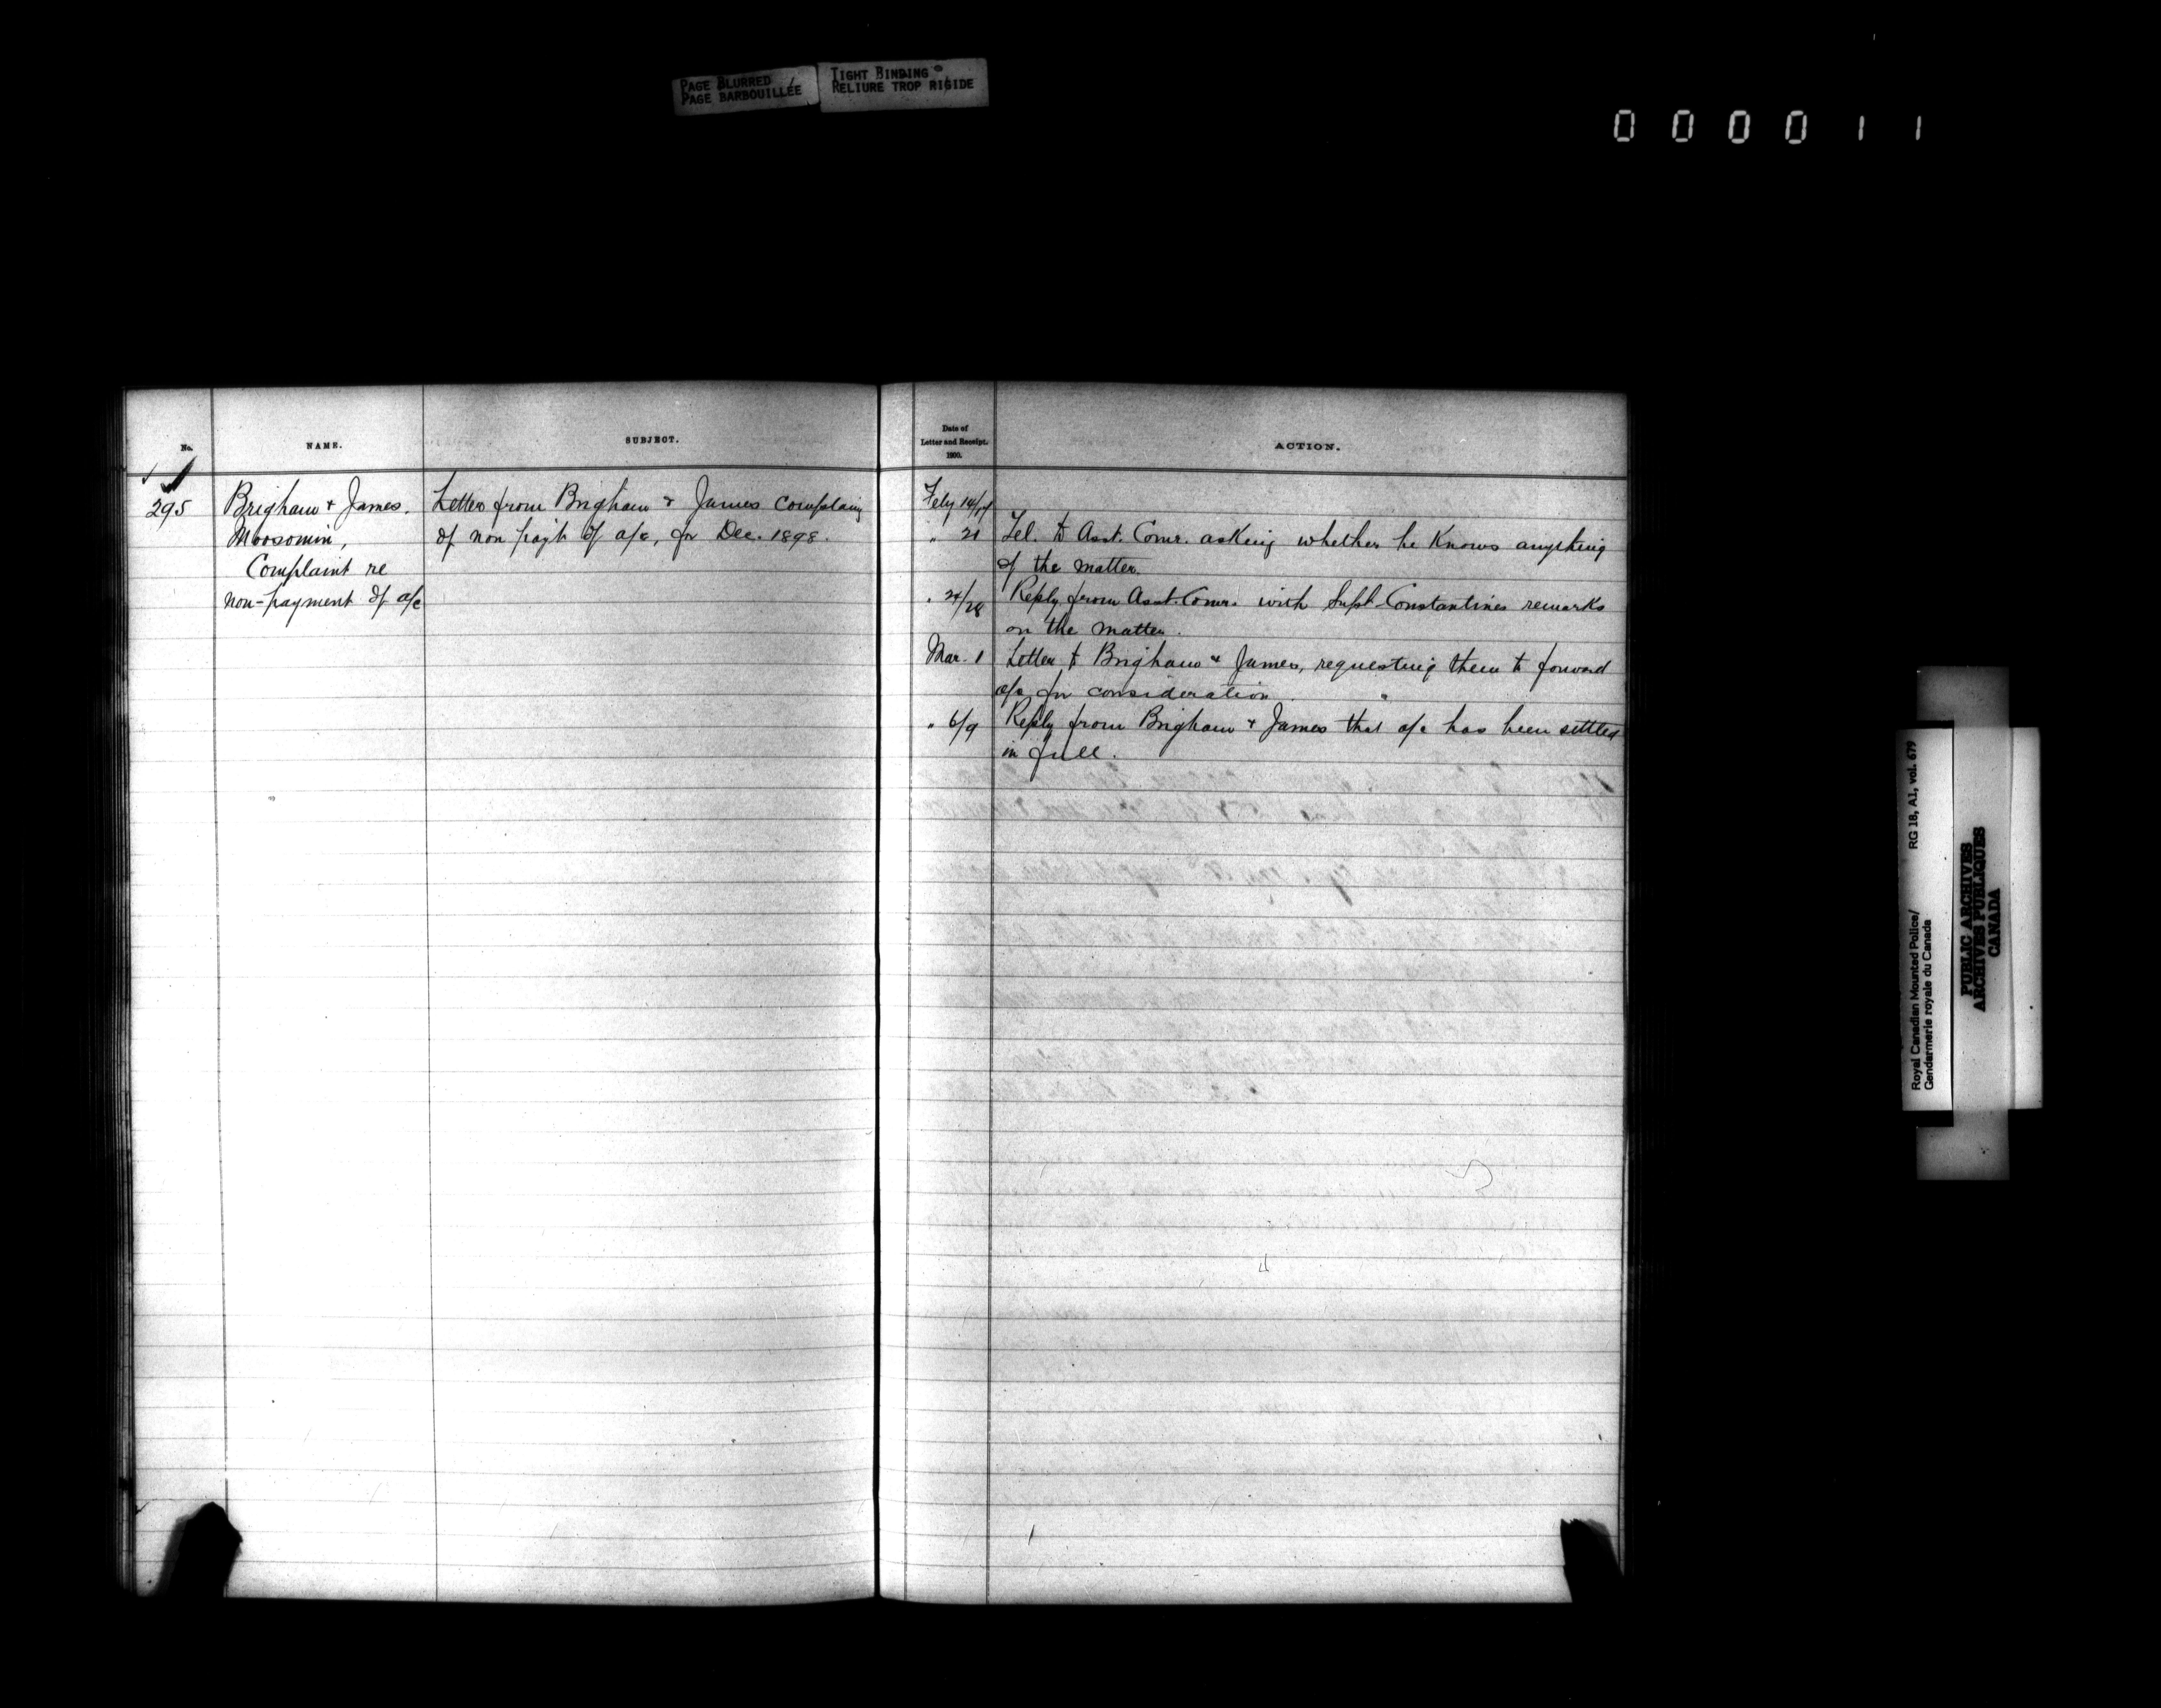 PAGE BLURRED
PAGE BARBOUILLÉE
TIGHT BINDING
RELIURE TROP RIGIDE
000011
No.
NAME.
SUBJECT.
Date of
Letter and Receipt.
1900.
ACTION.
295
Brigham & James.
Moosomin,
Complaint re
non-payment of a/c
Letter from Brigham & James complaing
of non payt of a/c, for Dec. 1898.
Feby 14/17
" 21 Tel. to Asst. Comr. asking whether he Knows anything
of the matter.
" 24/28 Reply from Asst. Comr. with Supt. Constantines remarks
on the matter.
Mar. 1 Letter to Brigham & James, requesting them to forward
a/c for consideration.
" 6/9 Reply from Brigham & James that a/c has been settled
in full.
Royal Canadian Mounted Police/ RG 18, A1, vol. 679
Gendarmerie royale du Canada
PUBLIC ARCHIVES
ARCHIVES PUBLIQUES
CANADA